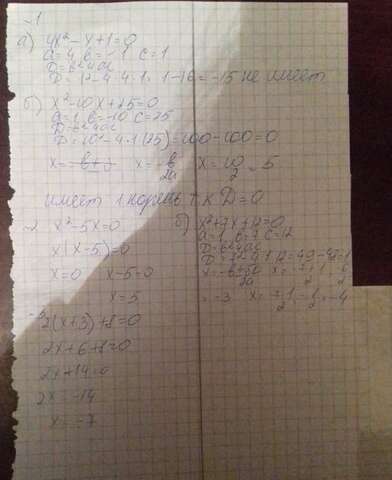 1
а) 4x² - x + 1 = 0
a = 4 b = -1 c = 1
D = b² - 4ac
D = 1² - 4·4·1 = 1 - 16 = -15 не имеет
б) x² - 10x + 25 = 0
a = 1 b = -10 c = 25
D = b² - 4ac
D = 10² - 4·1(25) = 100 - 100 = 0
x = -b/2a x = 10/2 = 5
имеет 1 корень т.к D = 0
2 x² - 5x = 0
x(x - 5) = 0
x = 0 x - 5 = 0
x = 5
б) x² + 7x + 12 = 0
a = 1 b = 7 c = 12
D = b² - 4ac
= -3
= -4
2(x + 3) + 8 = 0
2x + 6 + 8 = 0
2x + 14 = 0
2x = -14
x = -7